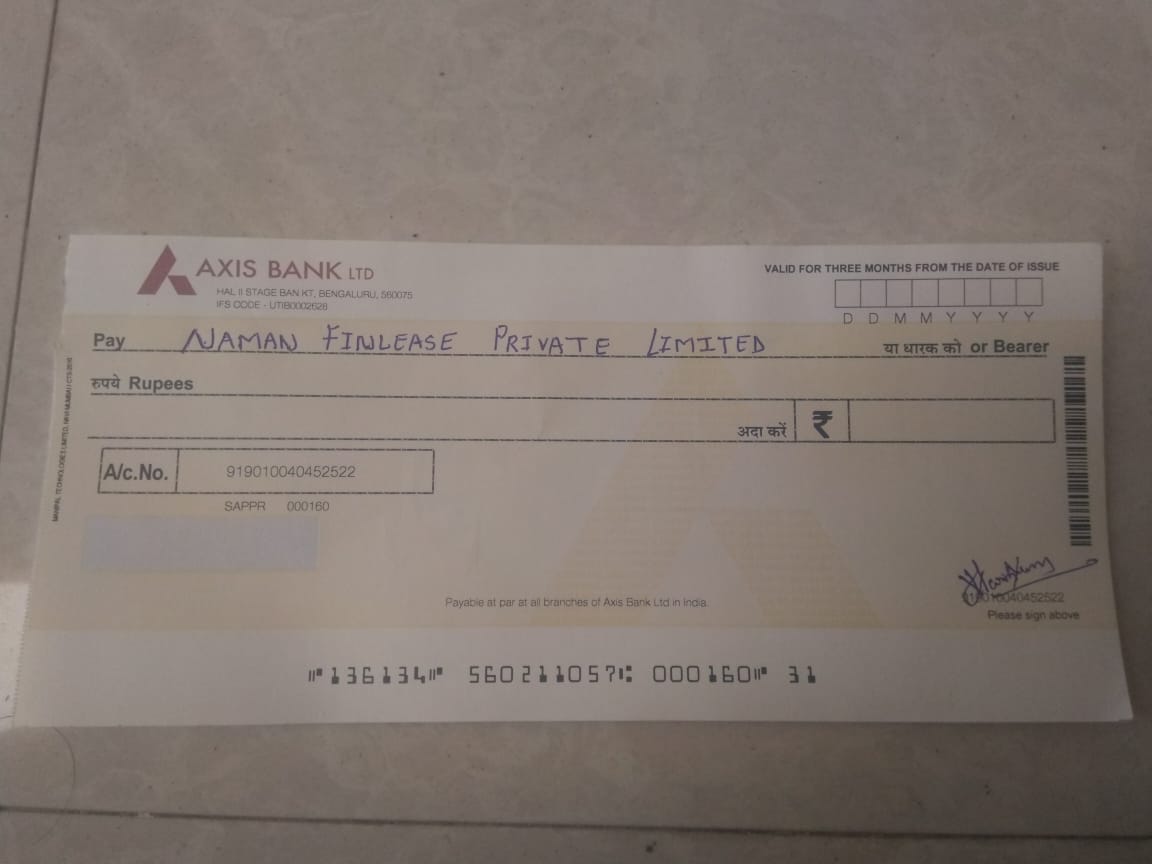 AXIS BANK LTD
HAL II STAGE BAN KT, BENGALURU, 560075
IFS CODE - UTIB0002628
VALID FOR THREE MONTHS FROM THE DATE OF ISSUE
D D M M Y Y Y Y
Pay NAMAN FINLEASE PRIVATE LIMITED या धारक को or Bearer
रुपये Rupees
अदा करें ₹
A/c.No. 919010040452522
SAPPR 000160
MANIPAL TECHNOLOGIES LIMITED, NAVI MUMBAI / CTS-2010
Payable at par at all branches of Axis Bank Ltd in India.
919010040452522
Please sign above
⑈136134⑈ 560211057⑆ 000160⑈ 31